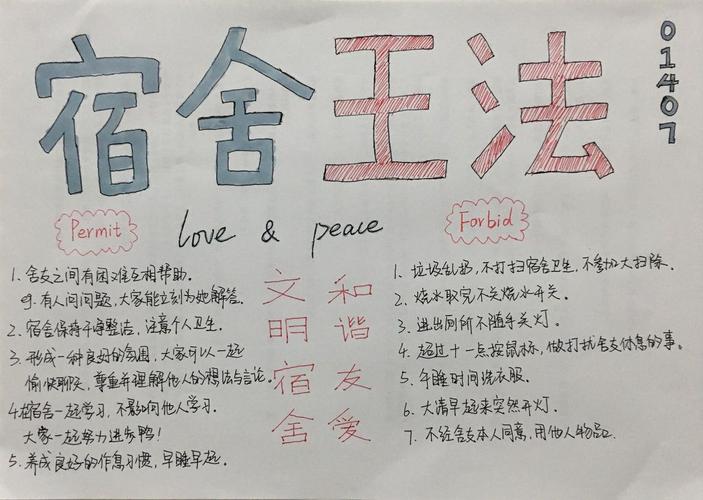 宿舍王法
01407
Permit
love & peace
Forbid
1. 舍友之间有困难互相帮助.
eg. 有人问问题, 大家能立刻为她解答.
2. 宿舍保持干净整洁, 注意个人卫生.
3. 形成一种良好的氛围, 大家可以一起
愉快聊天, 尊重并理解他人的想法与言论.
4. 在宿舍一起学习, 不影响他人学习.
大家一起努力进步鸭!
5. 养成良好的作息习惯, 早睡早起.
文 和
明 谐
宿 友
舍 爱
1. 垃圾乱扔, 不打扫宿舍卫生, 不参加大扫除.
2. 烧水取完不关烧水开关.
3. 进出厕所不随手关灯.
4. 超过十一点按鼠标, 做打扰舍友休息的事.
5. 午睡时间洗衣服.
6. 大清早起来突然开灯.
7. 不经舍友本人同意, 用他人物品.